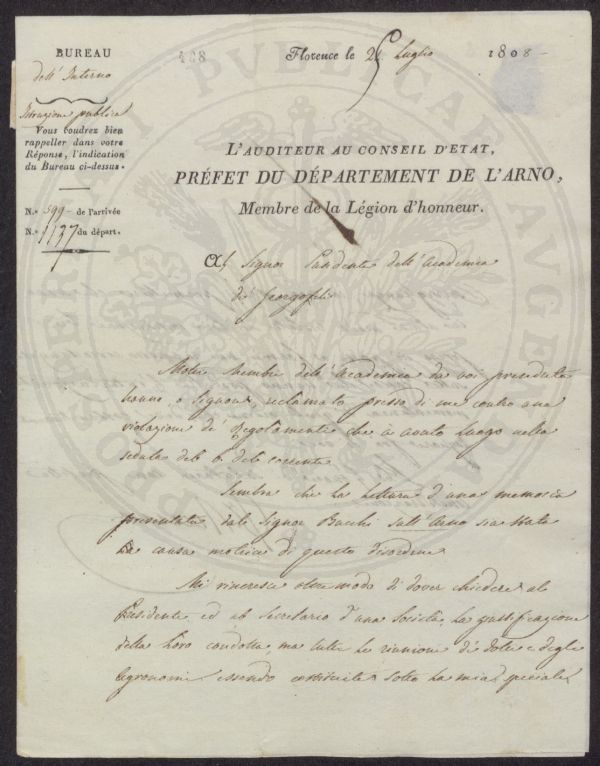 BUREAU
dell' Interno
Istruzione pubblica
Vous voudrez bien
rappeller dans votre
Réponse, l'indication
du Bureau ci-dessus.
N.° 599 de l'arrivée
N.° 1137 du départ.
488
Florence le 25 Luglio 1808
L'AUDITEUR AU CONSEIL D'ETAT,
PRÉFET DU DÉPARTEMENT DE L'ARNO,
Membre de la Légion d'honneur.
Al Signor Presidente dell' Accademia
di Georgofili
Molti Membri dell' Accademia da voi preseduta
hanno, o Signore, reclamato presso di me contro una
violazione di Regolamenti che à avuto luogo nella
seduta del 6. del corrente.
Sembra che la lettura d'una memoria
presentata dal Signor Bacchi sull' Arno sia stata
la causa motrice di questo disordine.
Mi rincresce oltremodo di dover chiedere al
Presidente ed al Secretario d'una Società, la giustificazione
della loro condotta, ma tutte le riunioni di dotti e degli
Agronomi essendo costituite sotto la mia speciale